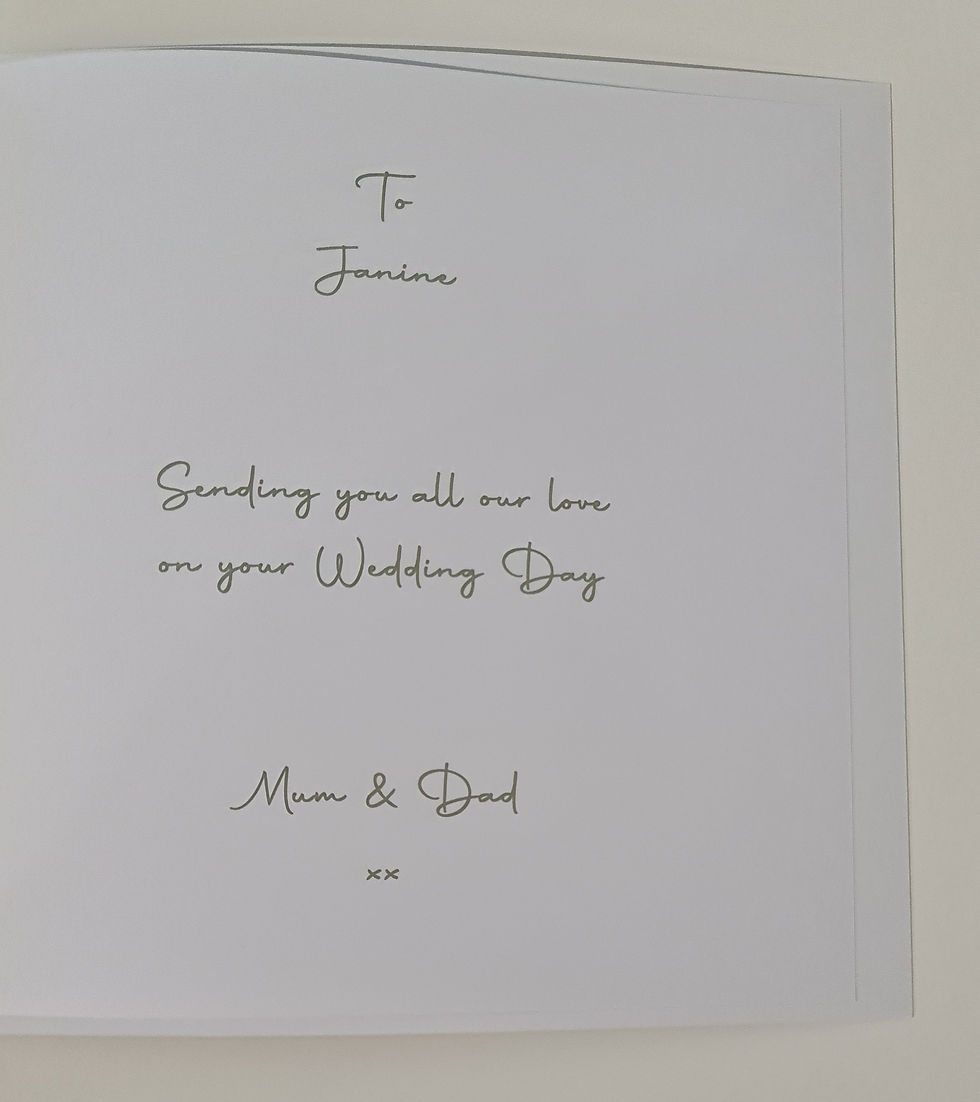 To
Janine
Sending you all our love
on your Wedding Day
Mum & Dad
xx